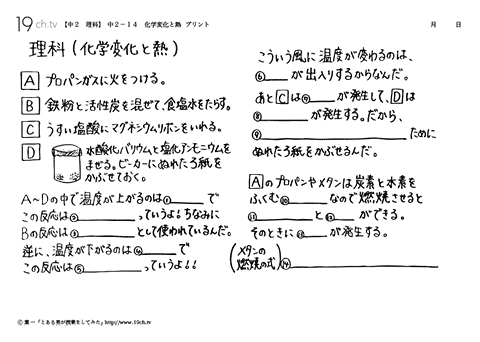 19ch.tv 【中2 理科】 中2-14 化学変化と熱 プリント 月 日
理科(化学変化と熱)
A プロパンガスに火をつける。
B 鉄粉と活性炭を混ぜて、食塩水をたらす。
C うすい塩酸にマグネシウムリボンをいれる。
D 水酸化バリウムと塩化アンモニウムを
まぜる。ビーカーにぬれたろ紙を
かぶせておく。
A~Dの中で温度が上がるのは①____で
この反応は②____っていうよ!ちなみに
Bの反応は③____として使われているんだ。
逆に、温度が下がるのは④____で
この反応は⑤____っていうよ!!
こういう風に温度が変わるのは、
⑥____が出入りするからなんだ。
あとCは⑦____が発生して、Dは
⑧____が発生する。だから、
⑨____ために
ぬれたろ紙をかぶせるんだ。
Aのプロパンやメタンは炭素と水素を
ふくむ⑩____なので燃焼させると
⑪____と⑫____ができる。
そのときに⑬____が発生する。
(メタンの
燃焼の式)⑭____
© 葉一「とある男が授業をしてみた」http://www.19ch.tv